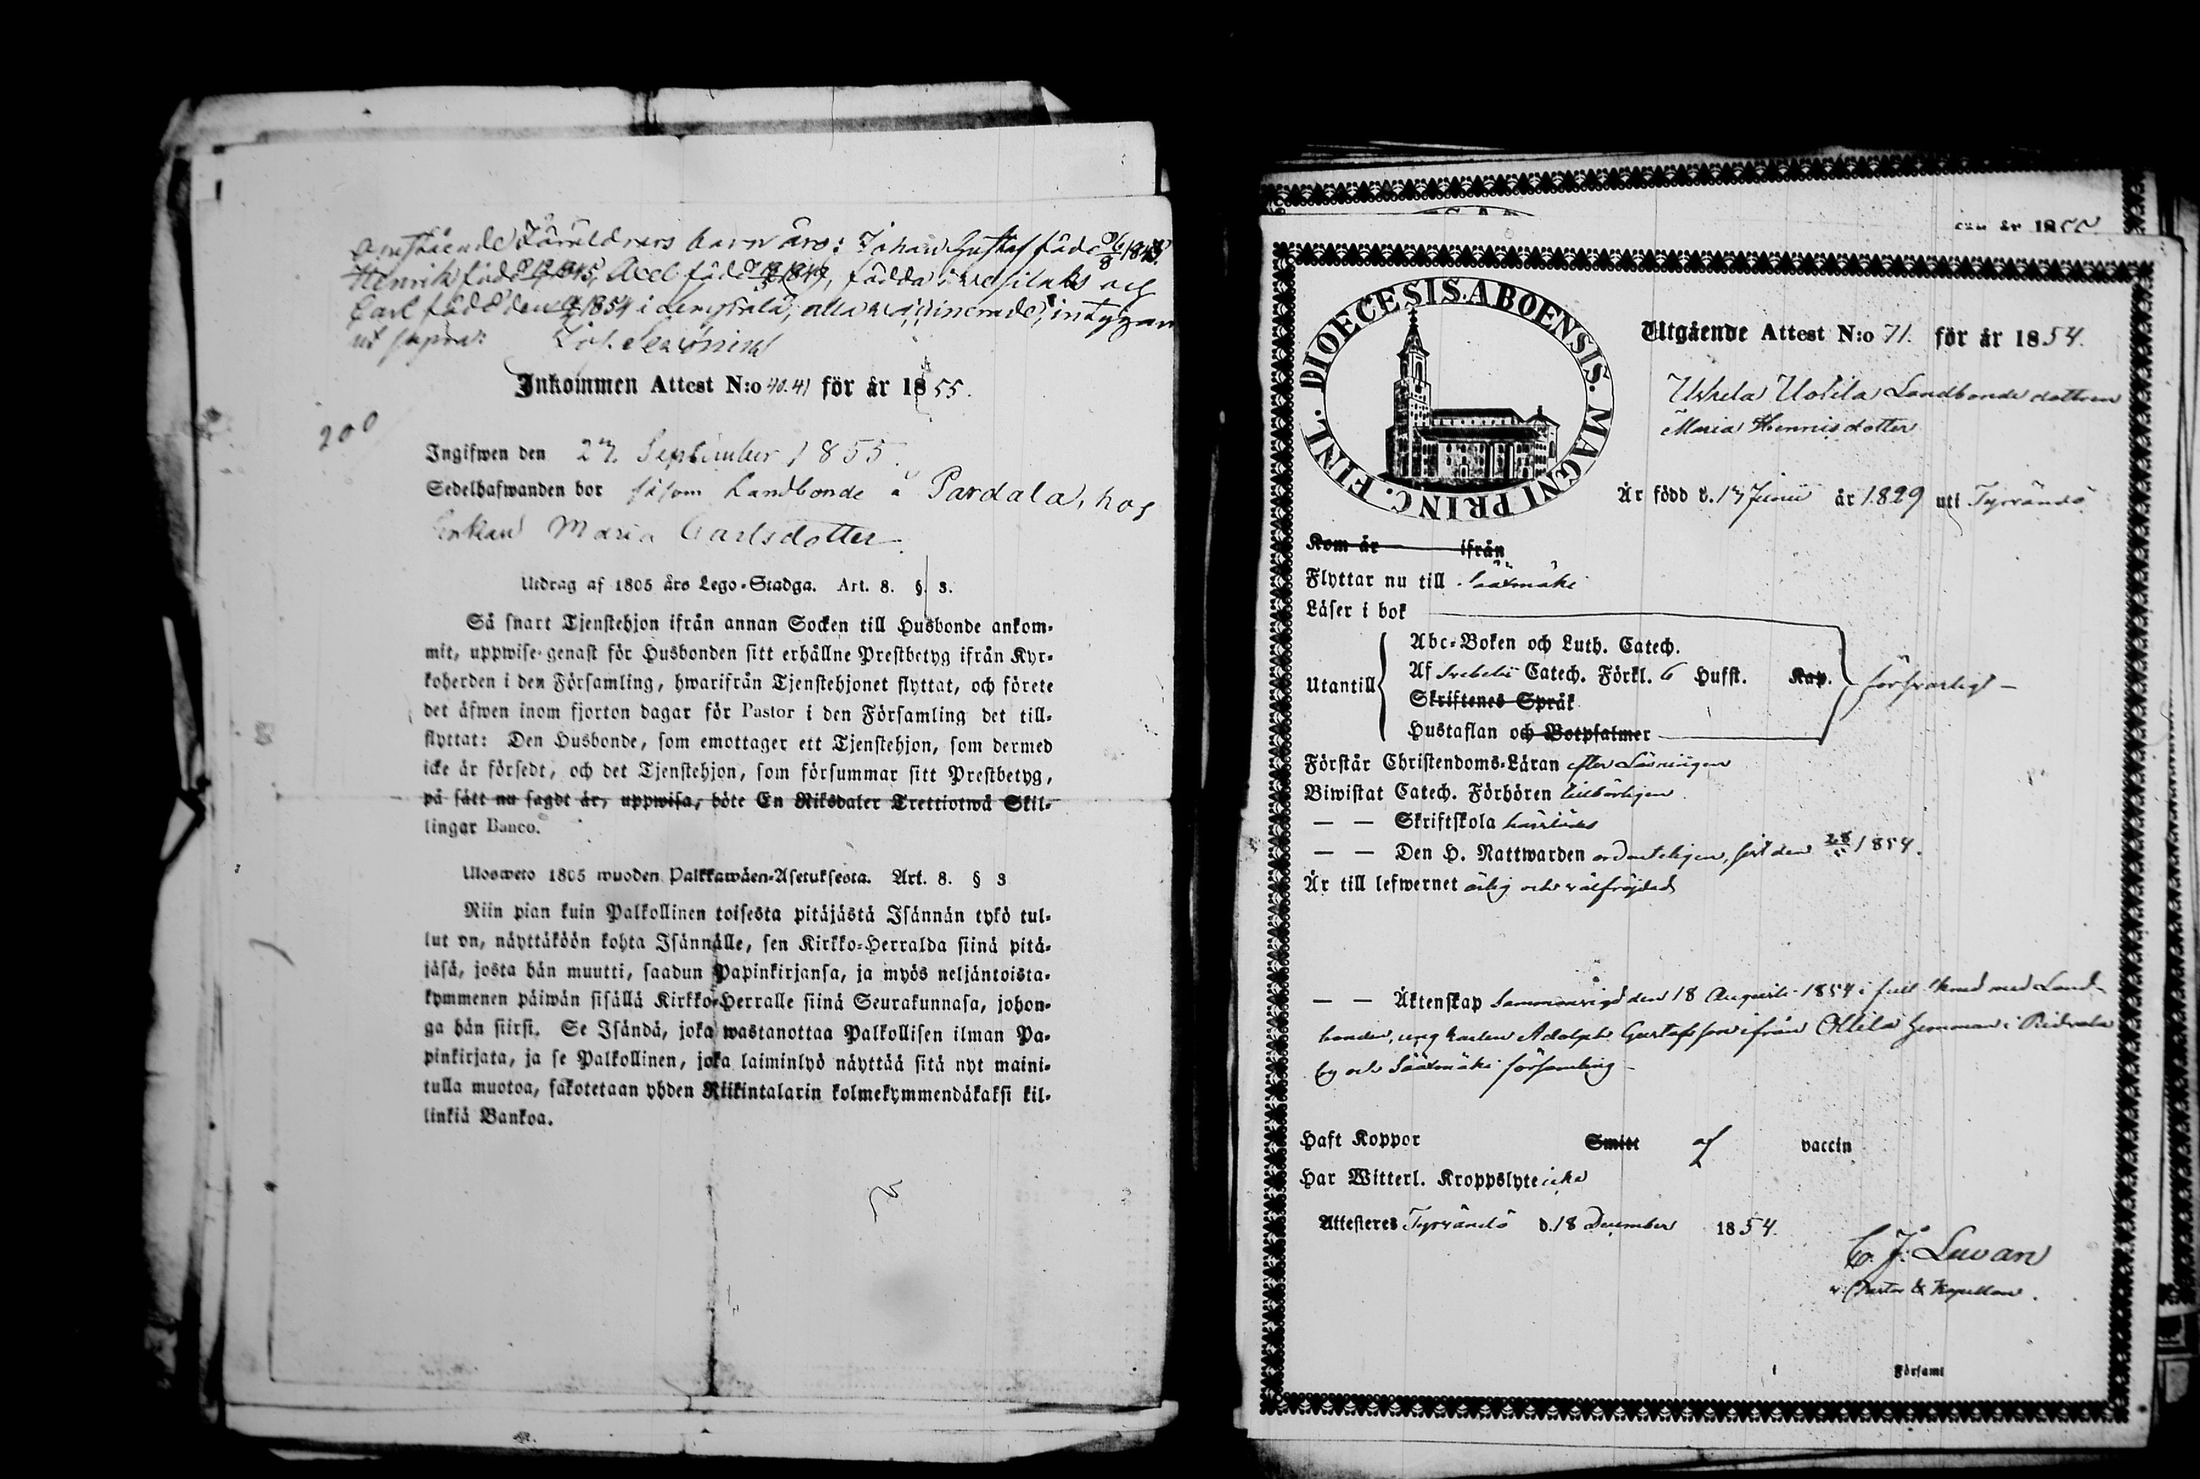 omstående Föräldrars barn äro: Johan Gustaf född
Henrik född Axel född födda i Vesilaks och
Carl född den 1854 i Lempäälä, alla vaccinerade, intygar
ut supra:
Inkommen Attest N:o 40.41 för år 1855.
200
Ingifwen den 27 September 1855.
Sedelhafwanden bor såsom Landbonde å Pardala, hos
Enkan Maria Carlsdotter
Utdrag af 1805 års Lego-Stadga. Art. 8. §. 3.
Så snart Tjenstehjon ifrån annan Socken till Husbonde ankom-
mit, uppwise genast för Husbonden sitt erhållne Prestbetyg ifrån Kyr-
koherden i den Församling, hwarifrån Tjenstehjonet flyttat, och förete
det äfwen inom fjorton dagar för Pastor i den Församling det till-
flyttat: Den Husbonde, som emottager ett Tjenstehjon, som dermed
icke är försedt, och det Tjenstehjon, som försummar sitt Prestbetyg,
på sätt nu sagdt är, uppwisa, böte En Riksdaler Trettiotwå Skil-
lingar Banco.
Ulosweto 1805 wuoden Palkkawäen-Asetuksesta. Art. 8. § 3
Niin pian kuin Palkollinen toisesta pitäjästä Isännän tykö tul-
lut on, näyttäköön kohta Isännälle, sen Kirkko-Herralda siinä pitä-
jäsä, josta hän muutti, saadun Papinkirjansa, ja myös neljäntoista-
kymmenen päiwän sisällä Kirkko-Herralle siinä Seurakunnasa, johon-
ga hän siirst. Se Isändä, joka wastanottaa Palkollisen ilman Pa-
pinkirjata, ja se Palkollinen, joka laiminlyö näyttää sitä nyt maini-
tulla muotoa, sakotetaan yhden Riikintalarin kolmekymmendäkaksi kil-
linkiä Bankoa.
för år 1855
DIOECESIS. ABOENSIS. MAGNI PRINC. FINL.
Utgående Attest N:o 71. för år 1854.
Uskila Uotila Landbonde dottren
Maria Henricsdotter
Är född d. 17 Junii år 1829 uti Tyrvändö
Kom år ifrån
Flyttar nu till Sääxmäki
Läser i bok
Abc-Boken och Luth. Catech.
Utantill Af Svebelii Catech. Förkl. 6 Hufst. Kap. försvarligt
Skriftenes Språk
Hustaflan och Botpsalmer
Förstår Christendoms-Läran efter Läsningen
Biwistat Catech. Förhören tillbörligen
— — Skriftskola härstädes
— — Den H. Nattwarden ordenteligen, sist den 1854.
Är till lefwernet ärlig och välfrejdad
— — Äktenskap Sammanvigd den 18 Augusti 1854 i full stånd med Land-
bonden, ung karlen Adolph Gustafsson ifrån Ollila hemman i Ridvala
by och Sääxmäki församling
Haft Koppor Smitt af vaccin
Har Witterl. Kroppslyte icke
Attesteres Tyrvändö d. 18 December 1854.
C. J. Levan
v. Pastor & Kapellan.
Församl